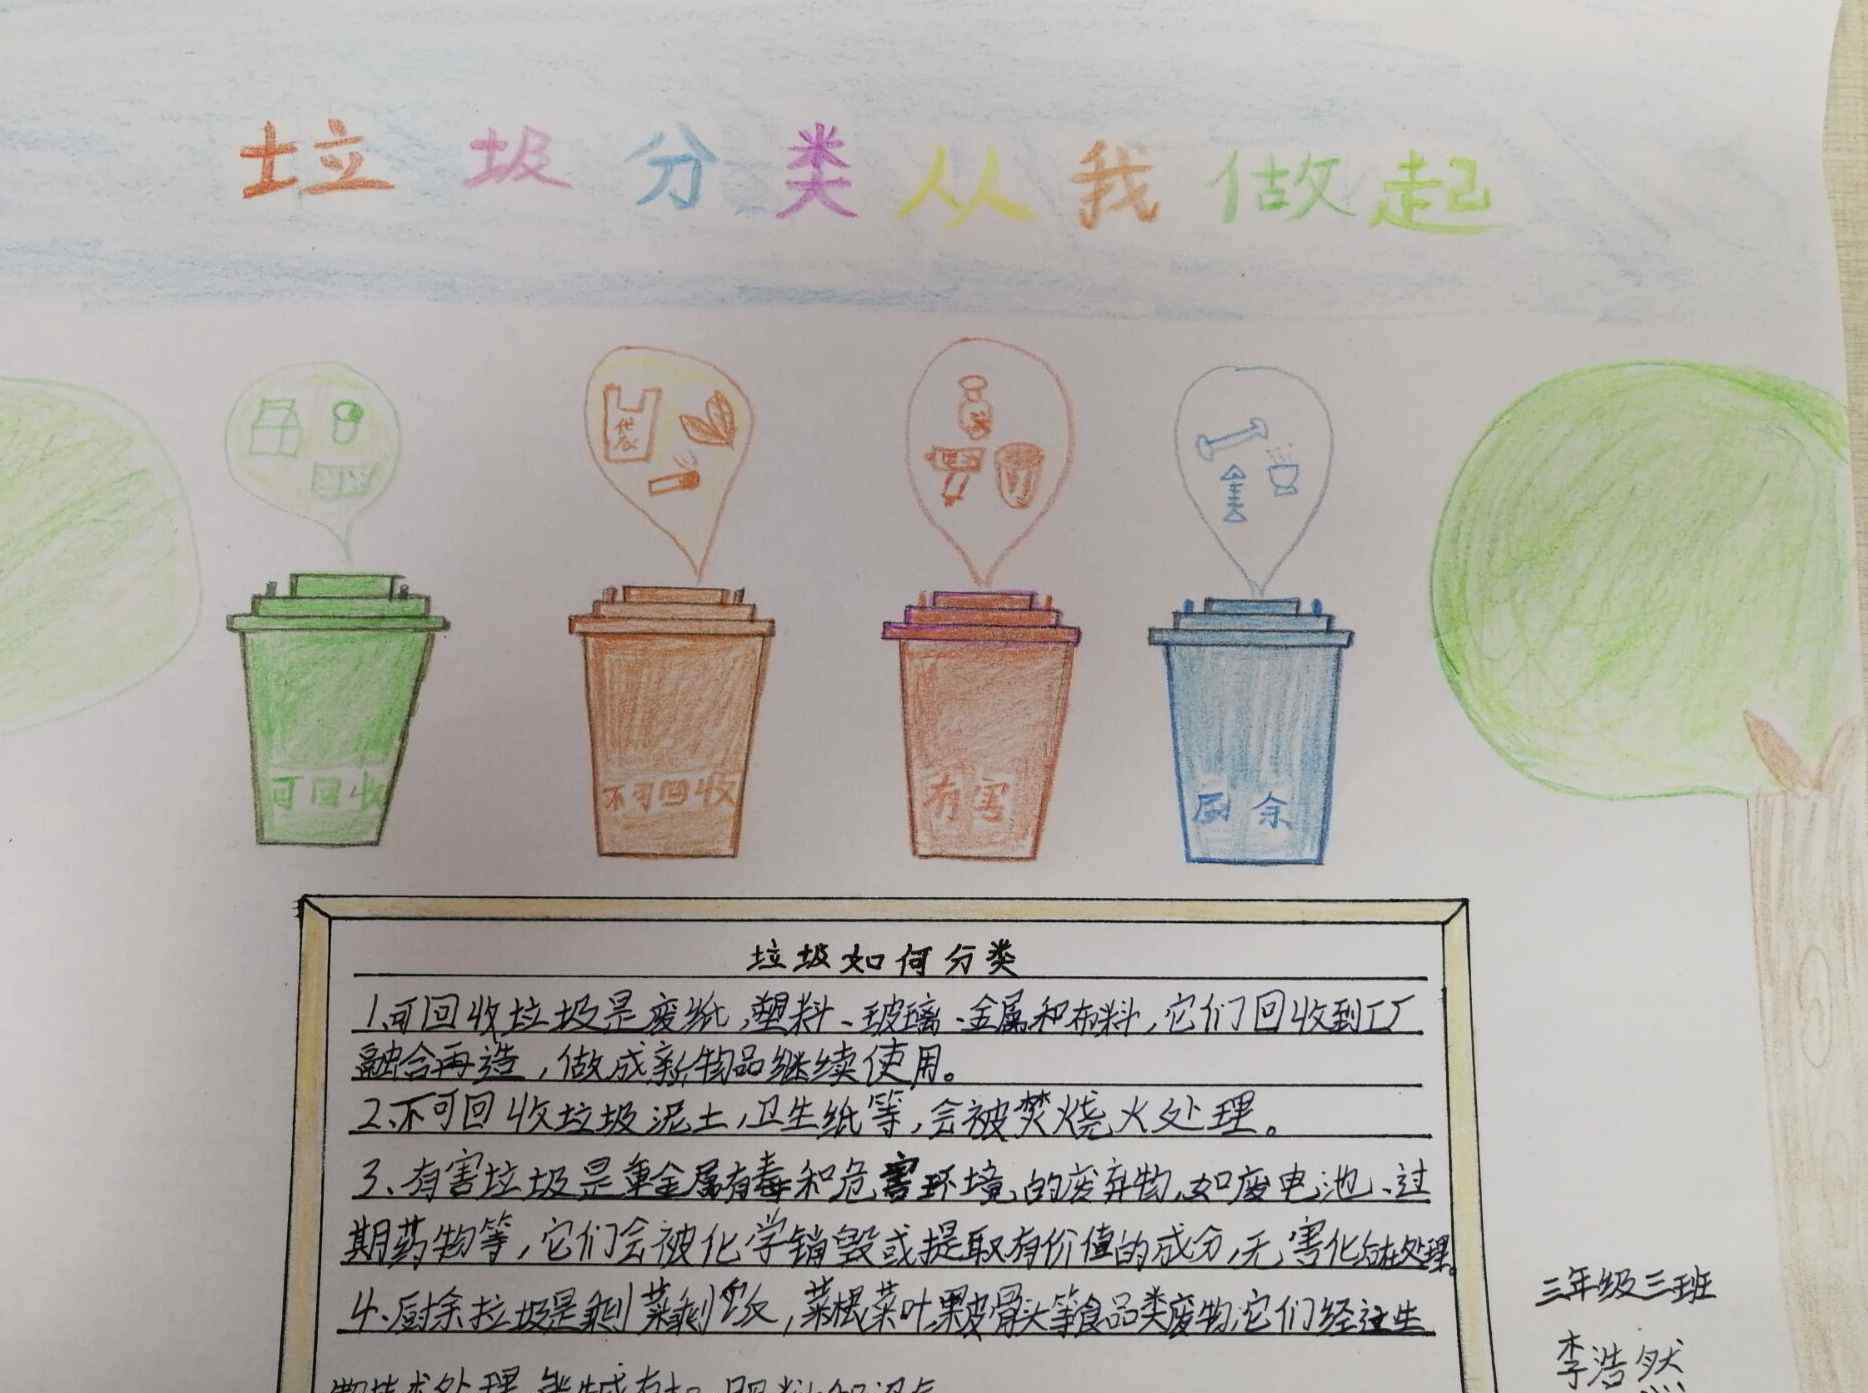 垃圾分类从我做起
可回收
不可回收
有害
厨余
垃圾如何分类
1、可回收垃圾是废纸、塑料、玻璃、金属和布料,它们回收到工厂
融合再造,做成新物品继续使用。
2、不可回收垃圾泥土,卫生纸等,会被焚烧火处理。
3、有害垃圾是重金属有毒和危害环境的废弃物,如废电池、过
期药物等,它们会被化学销毁或提取有价值的成分,无害化后在处理。
4、厨余垃圾是剩菜剩饭,菜根菜叶果皮骨头等食品类废物,它们经过生
三年级三班
李浩然